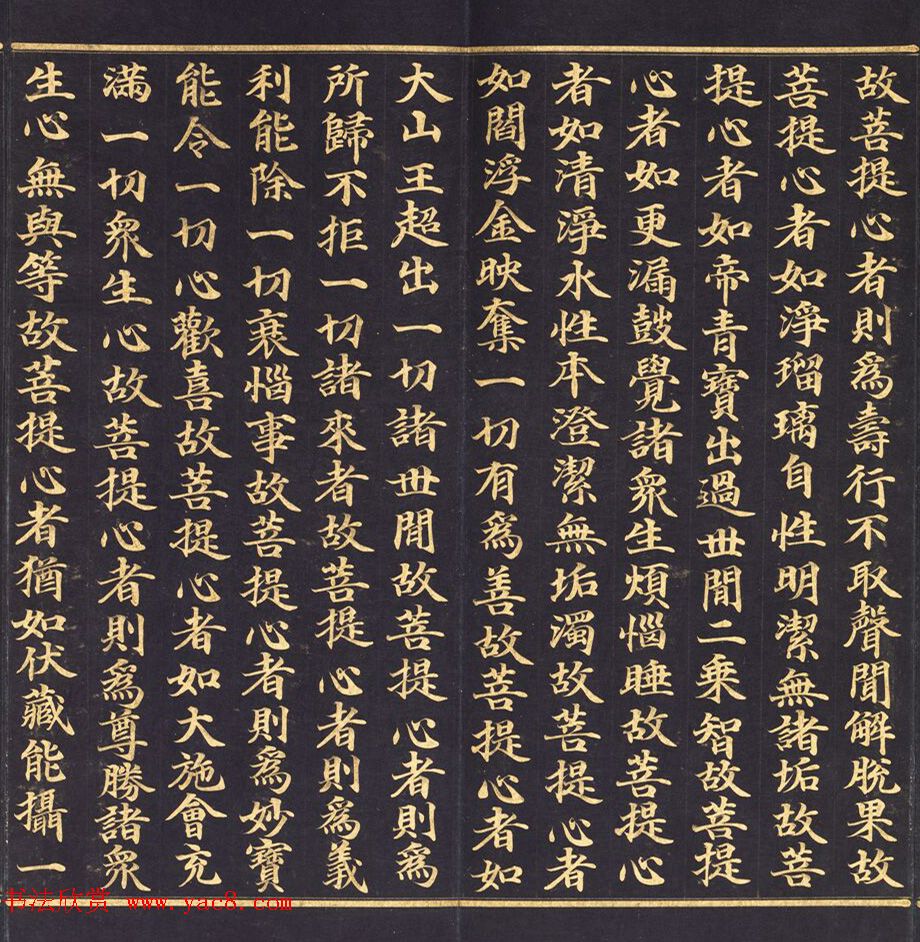 故菩提心者則為壽行不取聲聞解脫果故
菩提心者如淨瑠璃自性明潔無諸垢故菩
提心者如帝青寶出過世間二乘智故菩提
心者如更漏鼓覺諸衆生煩惱睡故菩提心
者如清淨水性本澄潔無垢濁故菩提心者
如閻浮金映奪一切有為善故菩提心者如
大山王超出一切諸世間故菩提心者則為
所歸不拒一切諸來者故菩提心者則為義
利能除一切衰惱事故菩提心者則為妙寶
能令一切心歡喜故菩提心者如大施會充
滿一切衆生心故菩提心者則為尊勝諸衆
生心無與等故菩提心者猶如伏藏能攝一
书法欣赏 www.yac8.com